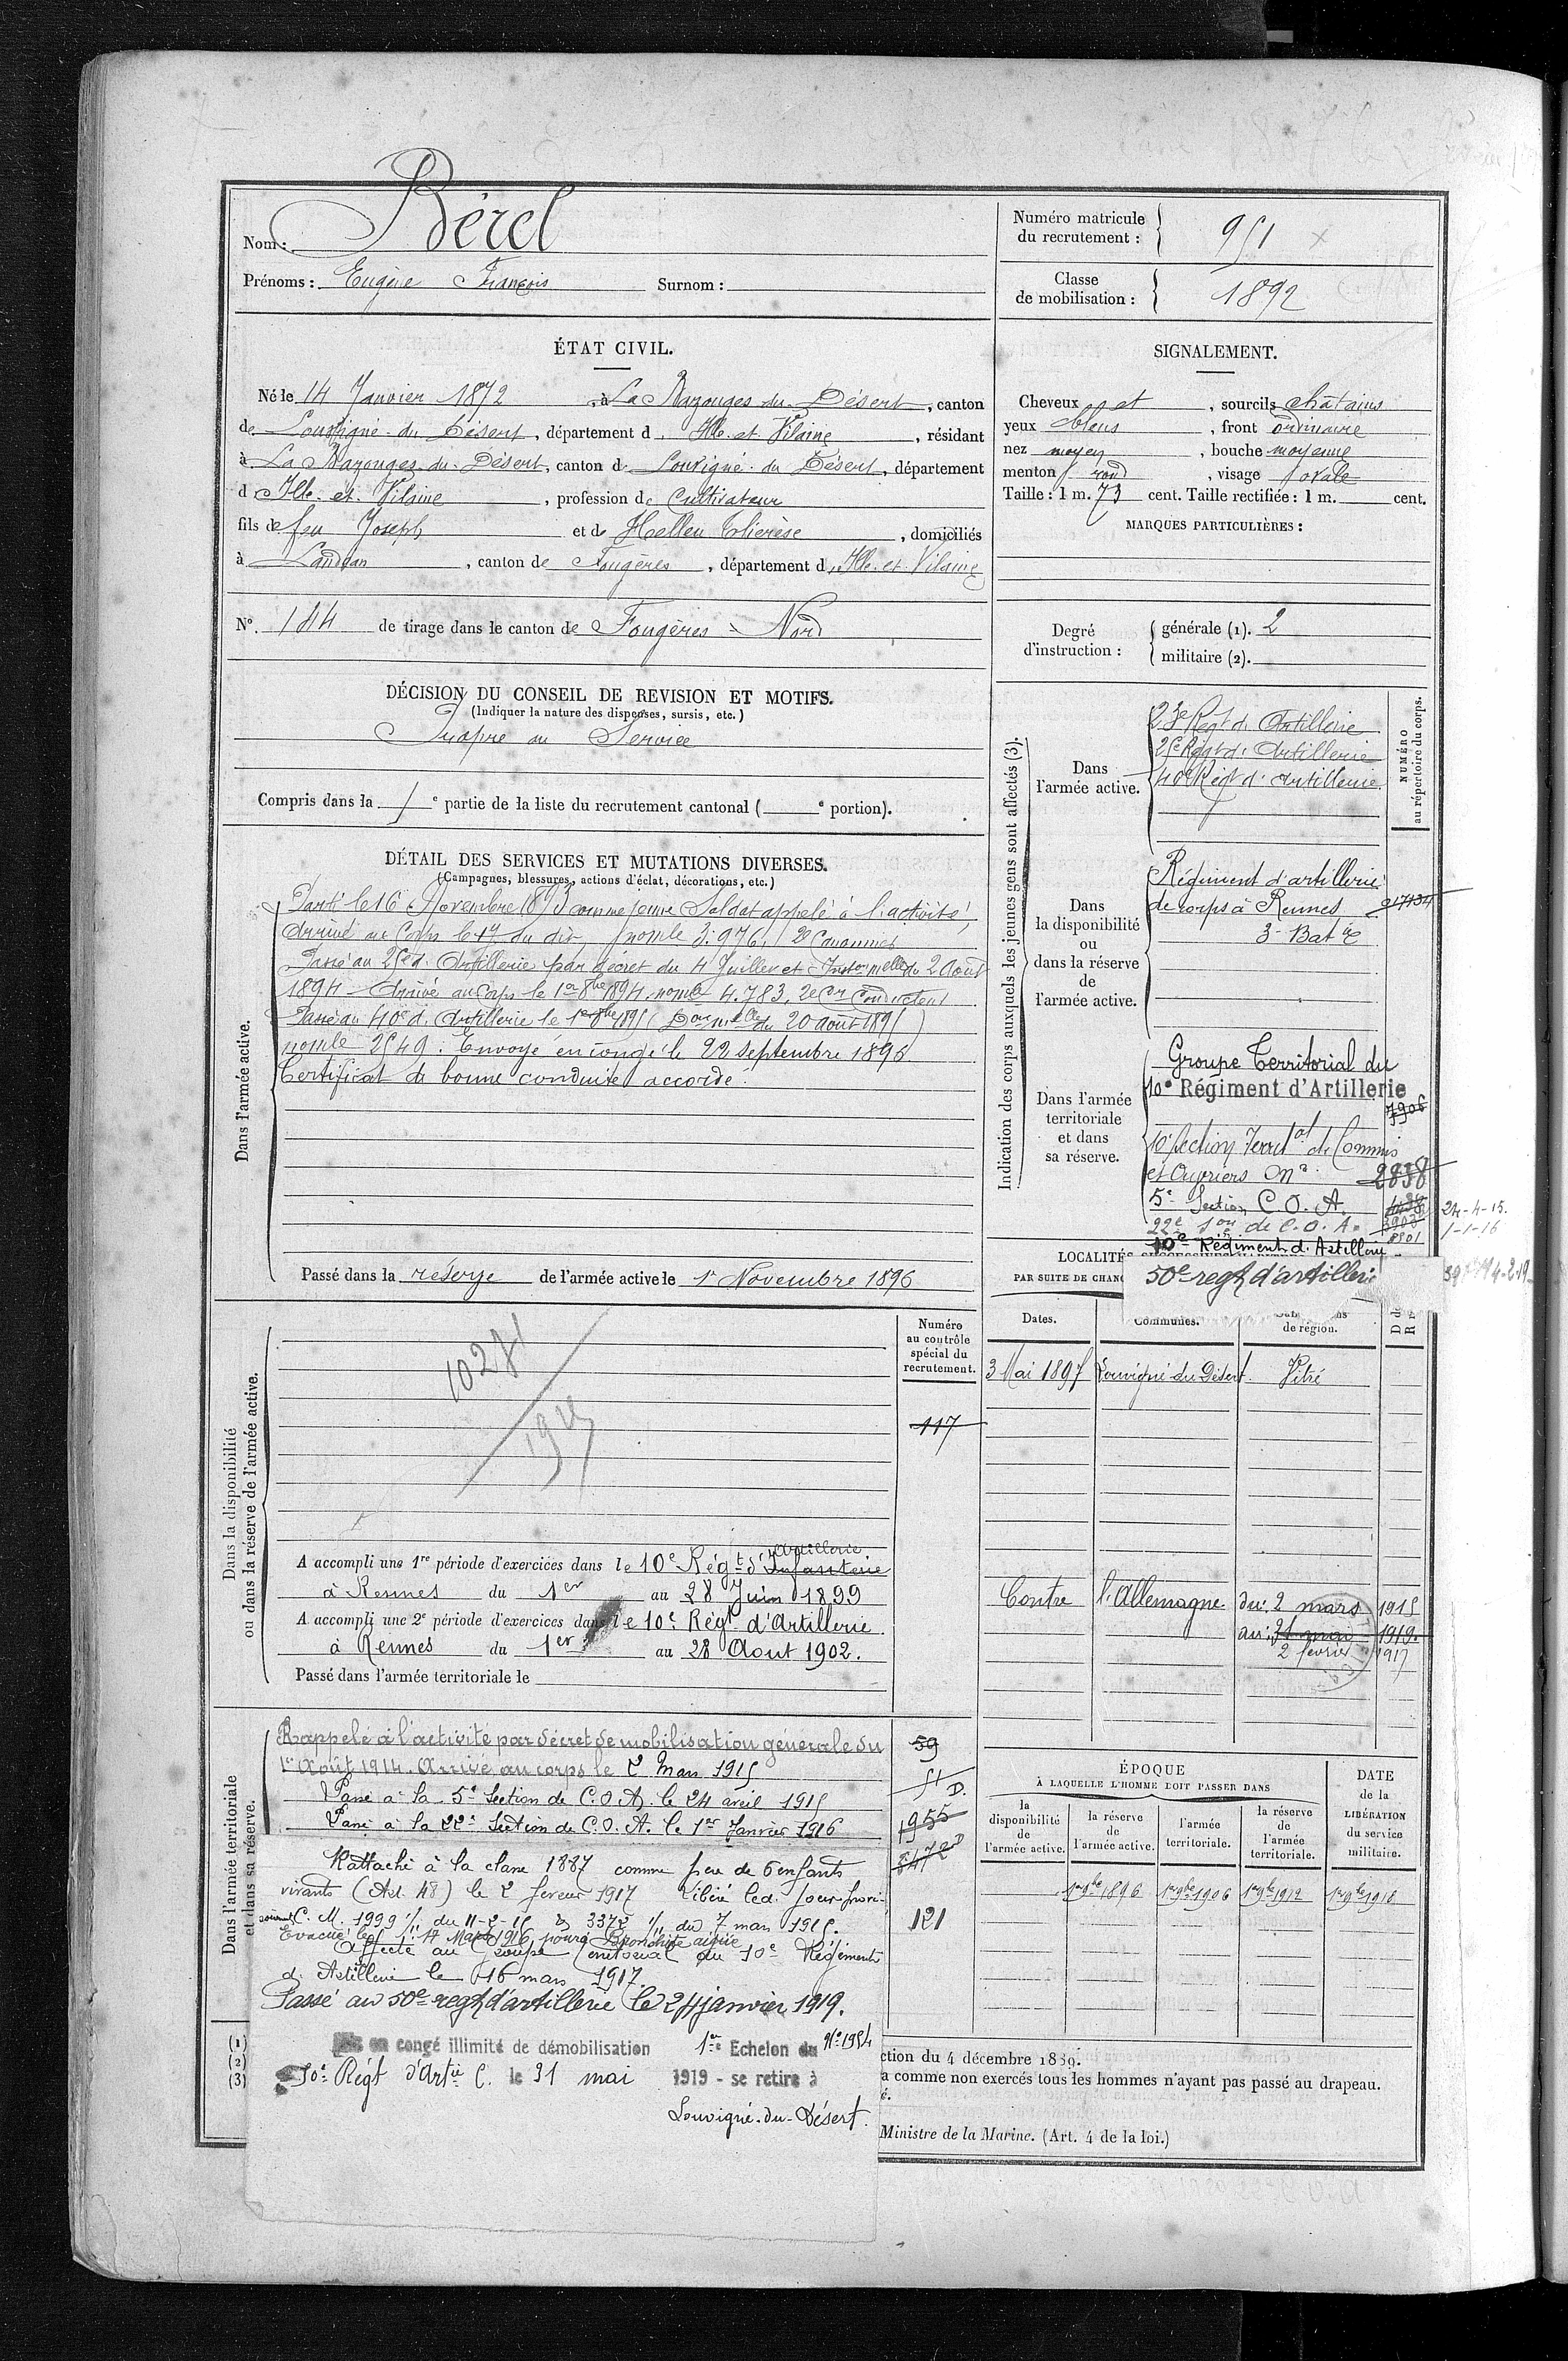 Nom : Bérel
Prénoms : Eugène François Surnom :
Numéro matricule du recrutement : 951
Classe de mobilisation : 1892
ÉTAT CIVIL.
Né le 14 Janvier 1872, à La Bazouges du Désert, canton
de Louvigné du Désert, département d Ille et Vilaine, résidant
à La Bazouges du Désert, canton d Louvigné du Désert, département
d Ille et Vilaine, profession de Cultivateur
fils de feu Joseph et de Helleu Thérèse, domiciliés
à Landéan, canton de Fougères, département d Ille et Vilaine
N° 144 de tirage dans le canton de Fougères - Nord
SIGNALEMENT.
Cheveux et, sourcils châtains
yeux bleus, front ordinaire
nez moyen, bouche moyenne
menton rond, visage ovale
Taille : 1 m. 73 cent. Taille rectifiée : 1 m. cent.
MARQUES PARTICULIÈRES :
Degré d'instruction :
générale (1). 2
militaire (2).
DÉCISION DU CONSEIL DE REVISION ET MOTIFS.
(Indiquer la nature des dispenses, sursis, etc.)
Propre au Service
Compris dans la 1e partie de la liste du recrutement cantonal ( e portion).
DÉTAIL DES SERVICES ET MUTATIONS DIVERSES.
(Campagnes, blessures, actions d'éclat, décorations, etc.)
Dans l'armée active.
Parti le 16 Novembre 1893 comme jeune Soldat appelé à l'activité,
Arrivé au Corps le 17 du dit, nomle 3.976. 2e Canonnier
Passé au 25e d'Artillerie par décret du 4 Juillet et Inston melle du 2 Août
1894 - Arrivé au Corps le 1er 8bre 1894, nomle 4.783, 2e Cer Conducteur
Passé au 40e d'Artillerie le 1er 8bre 1895 (Don mlle du 20 août 1895)
nomle 2549. Envoyé en congé le 22 septembre 1896.
Certificat de bonne conduite accordé.
Passé dans la réserve de l'armée active le 1er Novembre 1896
Indication des corps auxquels les jeunes gens sont affectés (3).
NUMÉRO au répertoire du corps.
Dans l'armée active.
23e Régt d'Artillerie
25e Régt d'Artillerie
40e Régt d'Artillerie
Dans la disponibilité ou dans la réserve de l'armée active.
Régiment d'artillerie
de corps à Rennes
3e Batrie
Dans l'armée territoriale et dans sa réserve.
Groupe Territorial du
10e Régiment d'Artillerie
7906
10e Section Territal de Commis
et Ouvriers Mre 2838
5e Section C.O.A. 24-4-15.
22e Son de C.O.A. 1-1-16
10e Régiment d'Artillerie
50e regt d'artillerie
LOCALITÉS
PAR SUITE DE CHAN
Dates. Communes. de région.
3 Mai 1897 Louvigné du Désert Vitré
Dans la disponibilité ou dans la réserve de l'armée active.
Numéro au contrôle spécial du recrutement.
117
A accompli une 1re période d'exercices dans le 10e Régt d'Infanterie Artillerie
à Rennes du 1er au 28 Juin 1899
A accompli une 2e période d'exercices dans le 10e Régt d'Artillerie
à Rennes du 1er au 28 Aout 1902.
Passé dans l'armée territoriale le
Contre l'Allemagne du 2 mars 1915
au 31 mai 1919.
2 février 1917
Dans l'armée territoriale et dans sa réserve.
Rappelé à l'activité par décret de mobilisation générale du 59
1er Août 1914. Arrivé au corps le 2 Mars 1915 51 D.
Passé à la 5e Section de C.O.A. le 24 avril 1915
Passé à la 22e Section de C.O.A. le 1er Janvier 1916 1955
Rattaché à la classe 1887 comme père de 6 enfants
vivants (Art. 48) le 2 février 1917 Libéré led. jour provi-
soiremt C.M. 1999 1/11 du 11-2-15 & 3372 1/11 du 7 mars 1915. 121
Evacué le 14 Mars 1916 pour Bronchite aigüe
Affecté au Groupe territorial du 10e Régiment
d'Artillerie le 16 mars 1917.
Passé au 50e regt d'artillerie le 24 janvier 1919.
Mis en congé illimité de démobilisation 1er Echelon du No 1954
50e Régt d'Artie C. le 31 mai 1919 - se retire à
Louvigné-du-Désert.
ÉPOQUE
À LAQUELLE L'HOMME DOIT PASSER DANS
la disponibilité de l'armée active.
la réserve de l'armée active.
l'armée territoriale.
la réserve de l'armée territoriale.
DATE de la LIBÉRATION du service militaire.
1er 9bre 1896 1er 9bre 1906 1er 9bre 1912 1er 9bre 1918
(1)
(2)
(3)
ction du 4 décembre 1889.
a comme non exercés tous les hommes n'ayant pas passé au drapeau.
é.
Ministre de la Marine. (Art. 4 de la loi.)